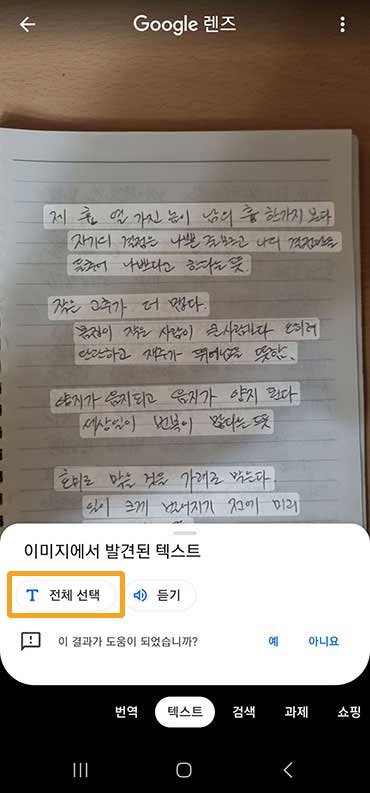 Google 렌즈
제 흉 열 가진 놈이 남의 흉 한가지 본다
자기의 결점은 나쁜 줄 모르고 남의 결점만을
들추어 나쁘다고 한다는 뜻.
작은 고추가 더 맵다.
몸집이 작은 사람이 큰 사람보다 오히려
단단하고 재주가 뛰어남을 뜻함.
양지가 음지되고 음지가 양지 된다
세상일이 번복이 많다는 뜻
호미로 막을 것을 가래로 막는다.
일이 크게 벌어지기 전에 미리
이미지에서 발견된 텍스트
T 전체 선택
듣기
이 결과가 도움이 되었습니까?
예
아니요
번역
텍스트
검색
과제
쇼핑